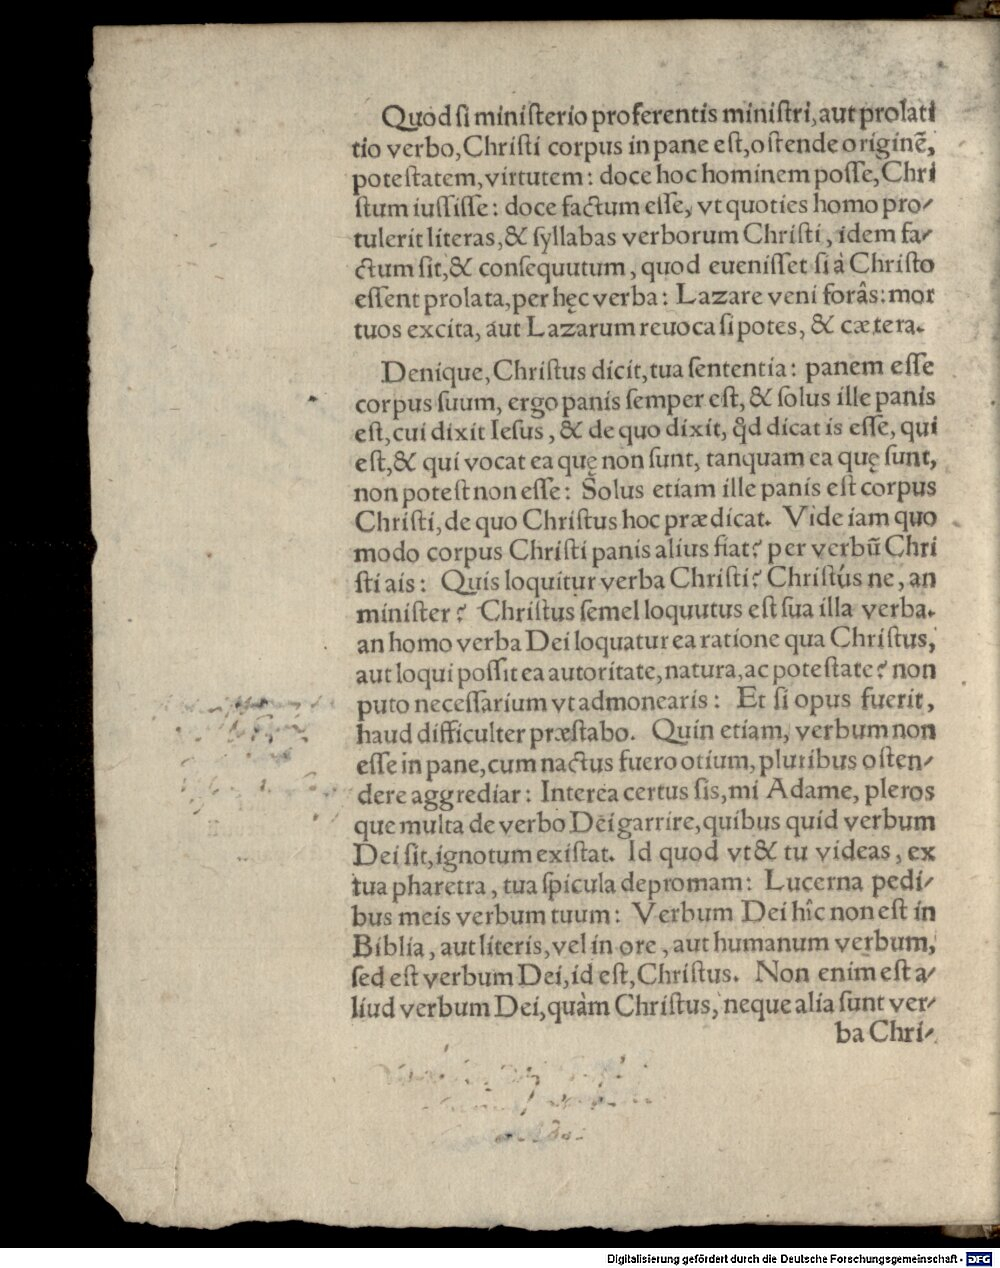 Quod si ministerio proferentis ministri, aut prolati
tio verbo, Christi corpus in pane est, ostende originẽ,
potestatem, virtutem: doce hoc hominem posse, Chri
stum iussisse: doce factum esse, vt quoties homo pro-
tulerit literas, & syllabas verborum Christi, idem fa-
ctum sit, & consequutum, quod euenisset si à Christo
essent prolata, per hęc verba: Lazare veni forâs: mor
tuos excita, aut Lazarum reuoca si potes, & cætera.
Denique, Christus dicit, tua sententia: panem esse
corpus suum, ergo panis semper est, & solus ille panis
est, cui dixit Iesus, & de quo dixit, qd̃ dicat is esse, qui
est, & qui vocat ea quę non sunt, tanquam ea quę sunt,
non potest non esse: Solus etiam ille panis est corpus
Christi, de quo Christus hoc prædicat. Vide iam quo
modo corpus Christi panis alius fiat? per verbũ Chri
sti ais: Quis loquitur verba Christi? Christus ne, an
minister? Christus semel loquutus est sua illa verba.
an homo verba Dei loquatur ea ratione qua Christus,
aut loqui possit ea autoritate, natura, ac potestate? non
puto necessarium vt admonearis: Et si opus fuerit,
haud difficulter præstabo. Quin etiam, verbum non
esse in pane, cum nactus fuero otium, pluribus osten-
dere aggrediar: Interea certus sis, mi Adame, pleros
que multa de verbo Dei garrire, quibus quid verbum
Dei sit, ignotum existat. Id quod vt & tu videas, ex
tua pharetra, tua spicula depromam: Lucerna pedi-
bus meis verbum tuum: Verbum Dei hîc non est in
Biblia, aut literis, vel in ore, aut humanum verbum,
sed est verbum Dei, id est, Christus. Non enim est a-
liud verbum Dei, quàm Christus, neque alia sunt ver-
ba Chri-
Digitalisierung gefördert durch die Deutsche Forschungsgemeinschaft - DFG